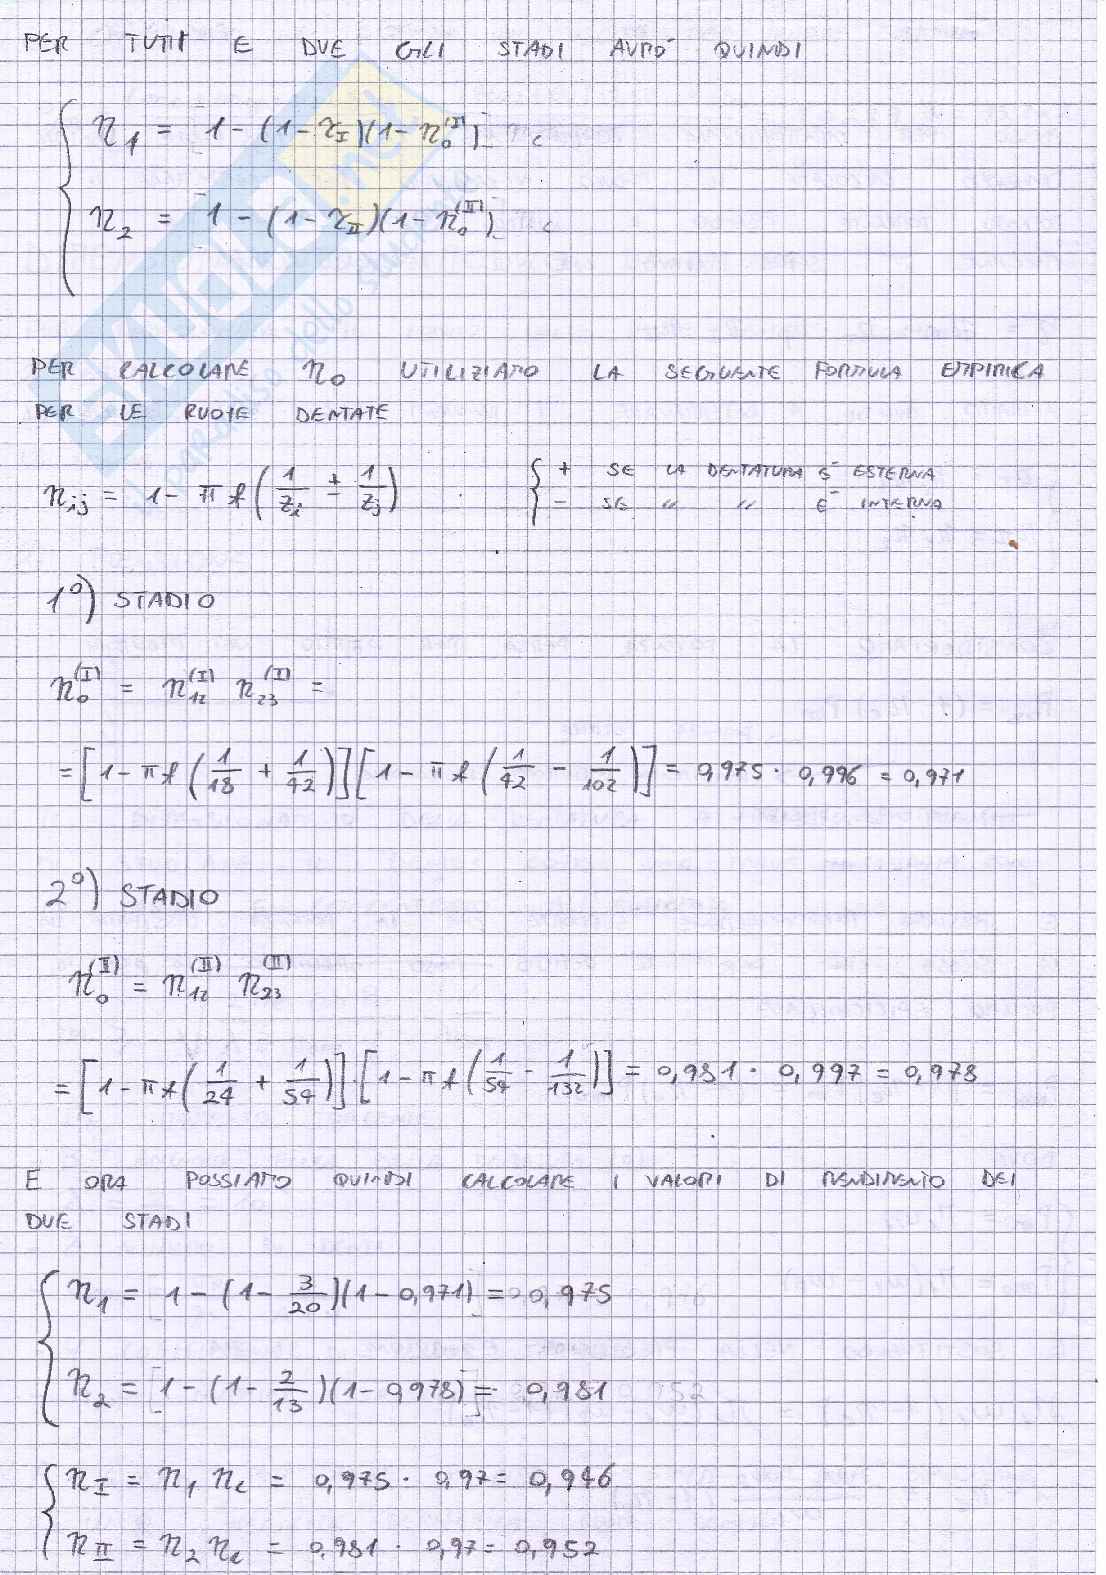 PER TUTTI E DUE GLI STADI AVRO' QUINDI
η₁ = 1 - (1 - τ_I)(1 - η₀^(I))
η₂ = 1 - (1 - τ_II)(1 - η₀^(II))
PER CALCOLARE η₀ UTILIZIAMO LA SEGUENTE FORMULA EMPIRICA
PER LE RUOTE DENTATE
η_ij = 1 - π f (1/z_i ± 1/z_j) { + SE LA DENTATURA E' ESTERNA
- SE " " E' INTERNA
1°) STADIO
η₀^(I) = η₁₂^(I) η₂₃^(I) =
= [1 - π f (1/18 + 1/42)][1 - π f (1/42 - 1/102)] = 0,975 · 0,996 = 0,971
2°) STADIO
η₀^(II) = η₁₂^(II) η₂₃^(II)
= [1 - π f (1/24 + 1/54)]·[1 - π f (1/54 - 1/132)] = 0,981 · 0,997 = 0,978
E ORA POSSIAMO QUINDI CALCOLARE I VALORI DI RENDIMENTO DEI
DUE STADI
η₁ = 1 - (1 - 3/20)(1 - 0,971) = 0,975
η₂ = 1 - (1 - 2/13)(1 - 0,978) = 0,981
η_I = η₁ η_c = 0,975 · 0,97 = 0,946
η_II = η₂ η_c = 0,981 · 0,97 = 0,952
SKUOLA.net
il paradiso dello studente